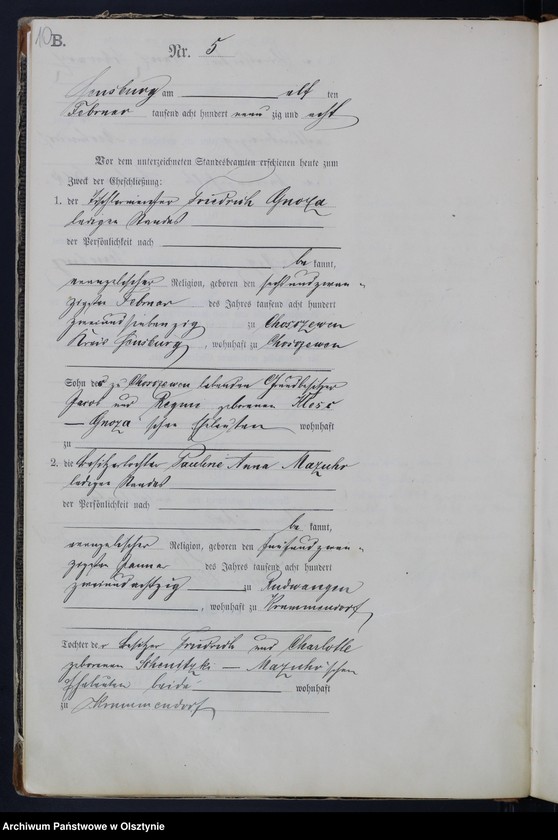 10 B.
Nr. 5
Sensburg am elf ten
Februar tausend acht hundert neun zig und acht
Vor dem unterzeichneten Standesbeamten erschienen heute zum
Zweck der Eheschließung:
1. der Tischlermeister Friedrich Gnoza
ledigen Standes
der Persönlichkeit nach
be kannt,
evangelischer Religion, geboren den sechsundzwan-
zigsten Februar des Jahres tausend acht hundert
zweiundsiebenzig zu Choszewen
Kreis Sensburg, wohnhaft zu Choszewen
Sohn des zu Choszewen lebenden Grundbesitzer
Jacob und Regine geborenen
Gnoza schen Eheleuten wohnhaft
zu
2. die Besitzertochter Pauline Anna Mazuhr
ledigen Standes
der Persönlichkeit nach
be kannt,
evangelischer Religion, geboren den fünfundzwan-
zigsten Januar des Jahres tausend acht hundert
zweiundachtzig zu Rudwangen
, wohnhaft zu Krummendorf
Tochter der Besitzer Friedrich und Charlotte
geborenen — Mazuhr'schen
Eheleuten beide wohnhaft
zu Krummendorf
Archiwum Państwowe w Olsztynie